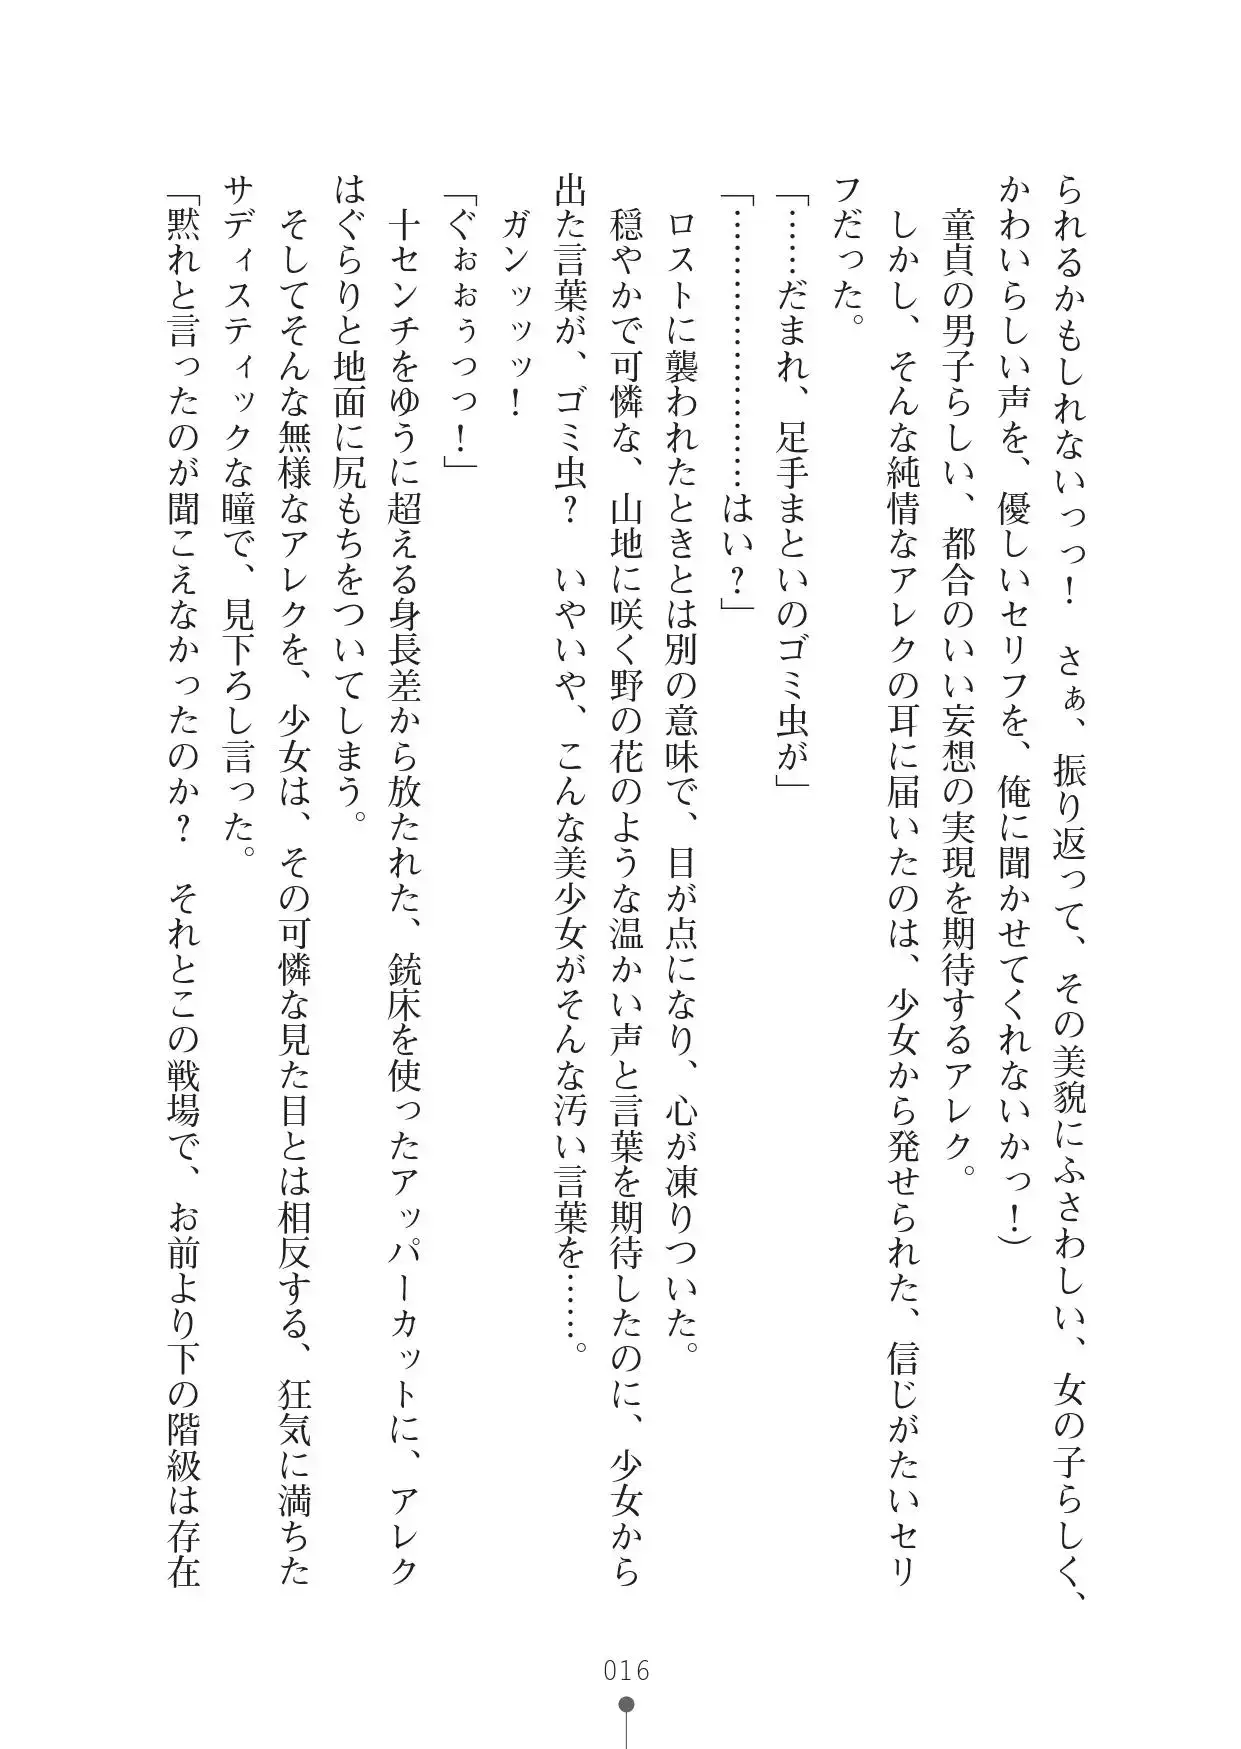 られるかもしれないっっ！　さぁ、振り返って、その美貌にふさわしい、女の子らしく、
かわいらしい声を、優しいセリフを、俺に聞かせてくれないかっ！）
　童貞の男子らしい、都合のいい妄想の実現を期待するアレク。
　しかし、そんな純情なアレクの耳に届いたのは、少女から発せられた、信じがたいセリ
フだった。
「……だまれ、足手まといのゴミ虫が」
「……………………はい？」
　ロストに襲われたときとは別の意味で、目が点になり、心が凍りついた。
　穏やかで可憐な、山地に咲く野の花のような温かい声と言葉を期待したのに、少女から
出た言葉が、ゴミ虫？　いやいや、こんな美少女がそんな汚い言葉を……。
　ガンッッッ！
「ぐぉぉぅっっ！」
　十センチをゆうに超える身長差から放たれた、銃床を使ったアッパーカットに、アレク
はぐらりと地面に尻もちをついてしまう。
　そしてそんな無様なアレクを、少女は、その可憐な見た目とは相反する、狂気に満ちた
サディスティックな瞳で、見下ろし言った。
「黙れと言ったのが聞こえなかったのか？　それとこの戦場で、お前より下の階級は存在
016